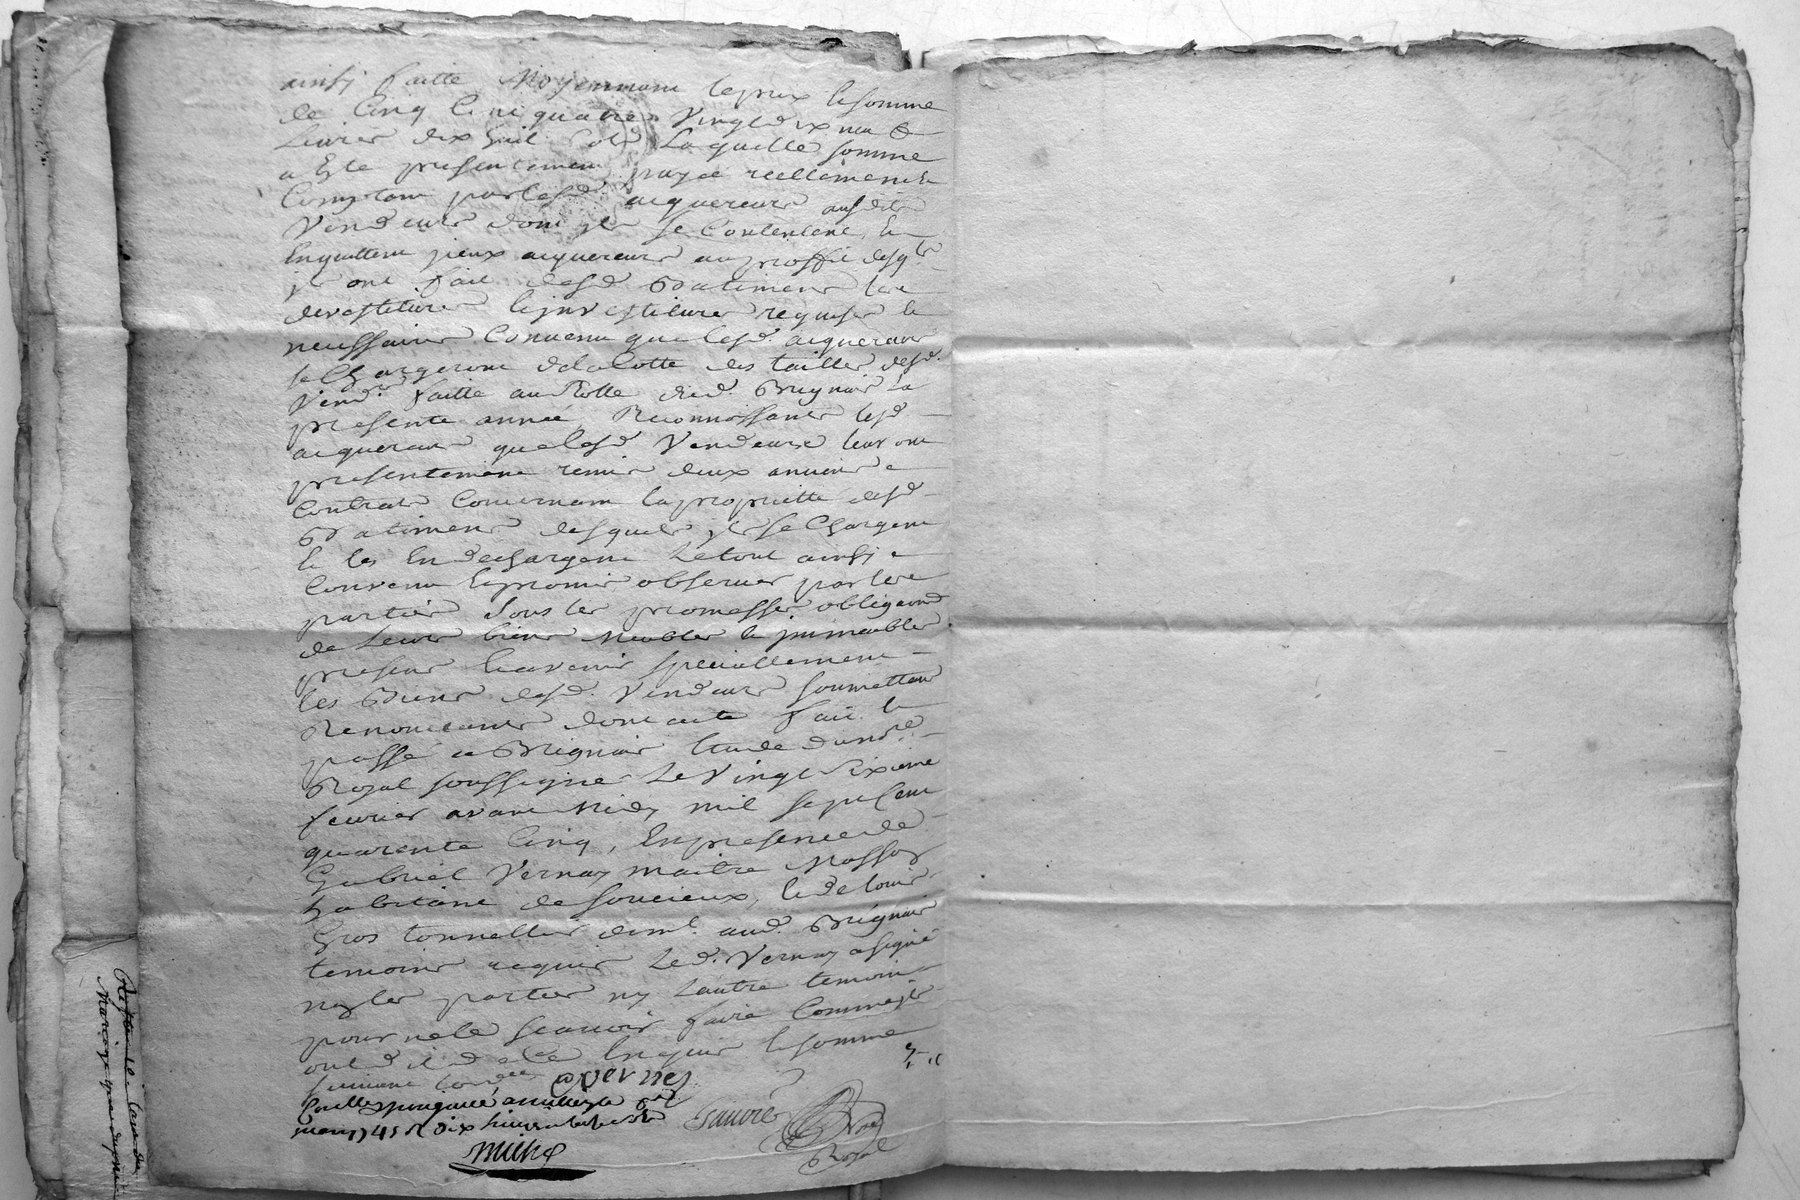 ainsy faitte Moyennant le prix & somme
de Cinq Cent quatre Vingt dix neuf
Livres dix huit sols Laquelle somme
a Esté presentement payée reellement &
Comptant par lesd acquereurs ausdits
Vendeurs dont ils se Contentent, &
En quittent yceux acquereurs au proffit desqls
ils ont fait desd Batimens les
devestitures & investitures requises &
necessaires Convenu que lesd. acquereurs
se Chargeront de la Cotte des tailles desd.
Vendrs faitte au Rolle dud. Brignais La
presente année, Reconnoissants lesd
acquereurs que lesd Vendeurs leur ont
presentement remis deux anciens
Contrats Concernant la proprieté desd
Batimens desquels ils se Chargent
& les En dechargent Le tout ainsi
Convenu & promis observer par les
parties sous les promesses obligaons
de Leurs biens Meubles & immeubles
presens & avenir specialement
les Biens desd. Vendeurs soumettans
Renonceants dont acte fait &
passé a Brignais Etude du nore
Royal soussigné Le Vingt Sixieme
fevrier avant Midy mil sept Cent
quarente Cinq, En presence de
Gabriel Vernay maitre Masson
habitant de Soucieux, & de Louis
Gros tonnellier demt. aud. Brignais
temoins requis Led. Vernay a signé
non les parties ny L'autre temoin
pour ne le scavoir faire Comme ils
ont dit de ce Enquis & somme
suivant lord.ce G Vernay
Controllé
mars 1745 R dix livres
Michel
Royal